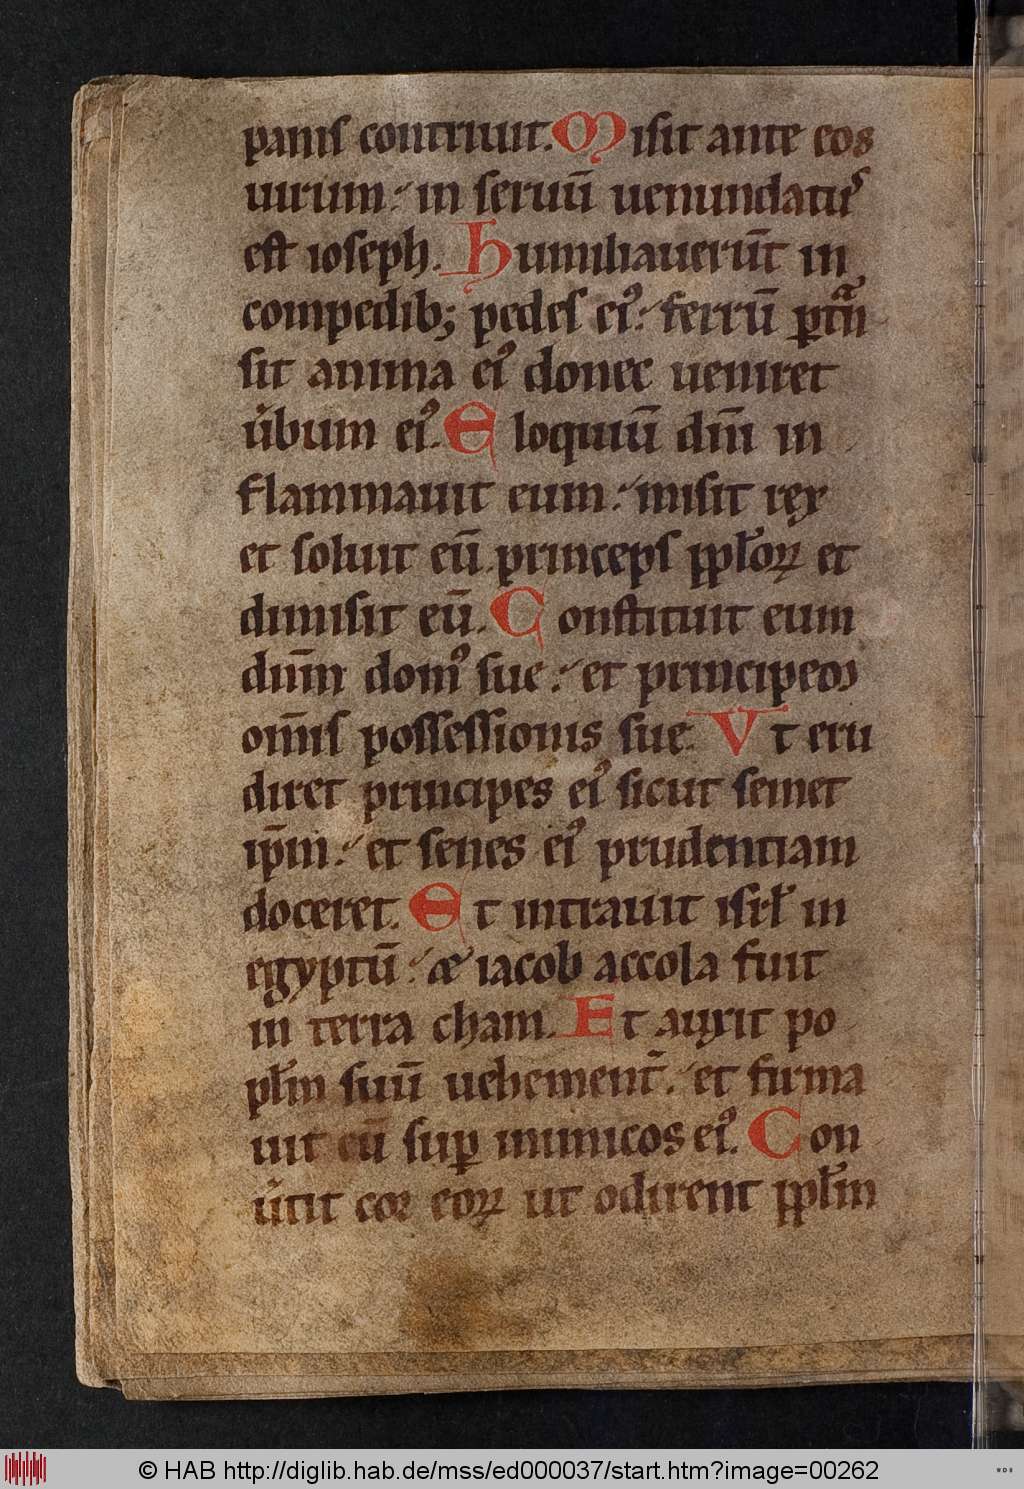 panis contriuit. Misit ante eos
uirum: in seruū uenundatus
est ioseph. Humiliauerūt in
compedib; pedes ei᷒: ferrū ꝑtrāsi
sit anima ei᷒ donec ueniret
u͛bum ei᷒. Eloquiū dn̄i in
flammauit eum: misit rex
et soluit eū princeps ppl̄oꝝ et
dimisit eū. Constituit eum
dn̄m dom᷒ sue: et principem
om̄is possessionis sue. Vt eru
diret principes ei᷒ sicut semet
ip̄m: et senes ei᷒ prudentiam
doceret. Et intrauit isrl̄ in
egyptū: & iacob accola fuit
in terra cham. Et auxit po
pl̄m suū uehement͛: et firma
uit eū suꝑ inimicos ei᷒. Con
u͛tit cor eoꝝ ut odirent ppl̄m
© HAB http://diglib.hab.de/mss/ed000037/start.htm?image=00262